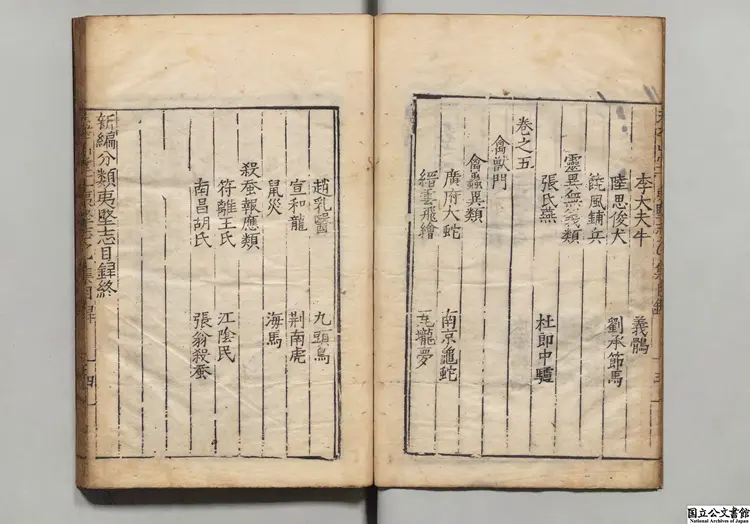 李大夫牛 義鶻
陸思俊犬 劉承節馬
䭾風鋪兵
靈異無[?]類
張氏燕 杜郎中驢
卷之五
禽獸門
禽蟲異類
廣府大蛇 南京龜蛇
縉雲飛繪
趙乳醫 九頭鳥
宣和龍 荆南虎
鼠災 海馬
殺蚕報應類
符離王氏 江陰民
南昌胡氏 張翁殺蚕
新編分類夷堅志目録終
国立公文書館
National Archives of Japan